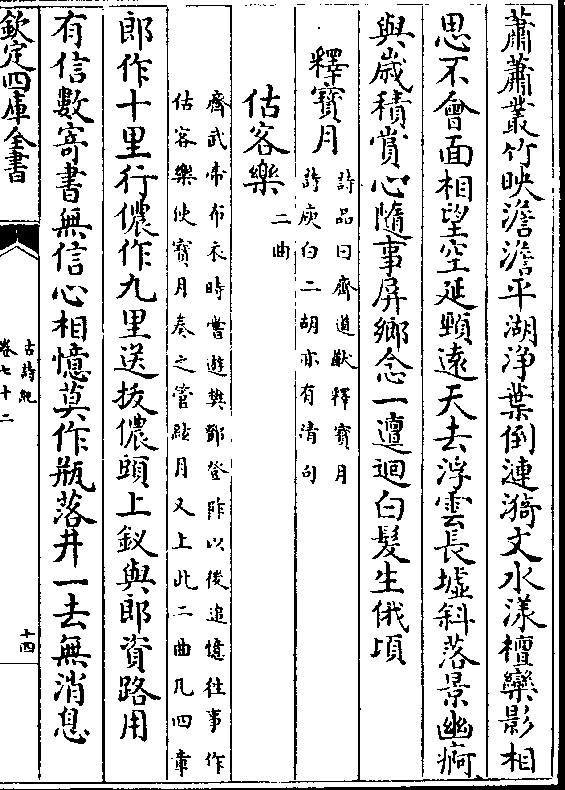 蕭蕭叢竹映澹澹平湖淨葉倒漣漪文水漾檀欒影相
思不會面相望空延頸遠天去浮雲長墟斜落景幽痾
與歲積賞心隨事屏鄉念一邅迴白髮生俄頃
釋寶月
詩品曰齊道猷釋寶月
詩庾白二胡亦有清句
估客樂
二曲
齊武帝布衣時嘗遊樊鄧登阼以後追憶往事作
估客樂使寶月奏之管絃月又上此二曲凡四章
郎作十里行儂作九里送拔儂頭上釵與郎資路用
有信數寄書無信心相憶莫作瓶落井一去無消息
欽定四庫全書
古詩紀
卷七十二
十四